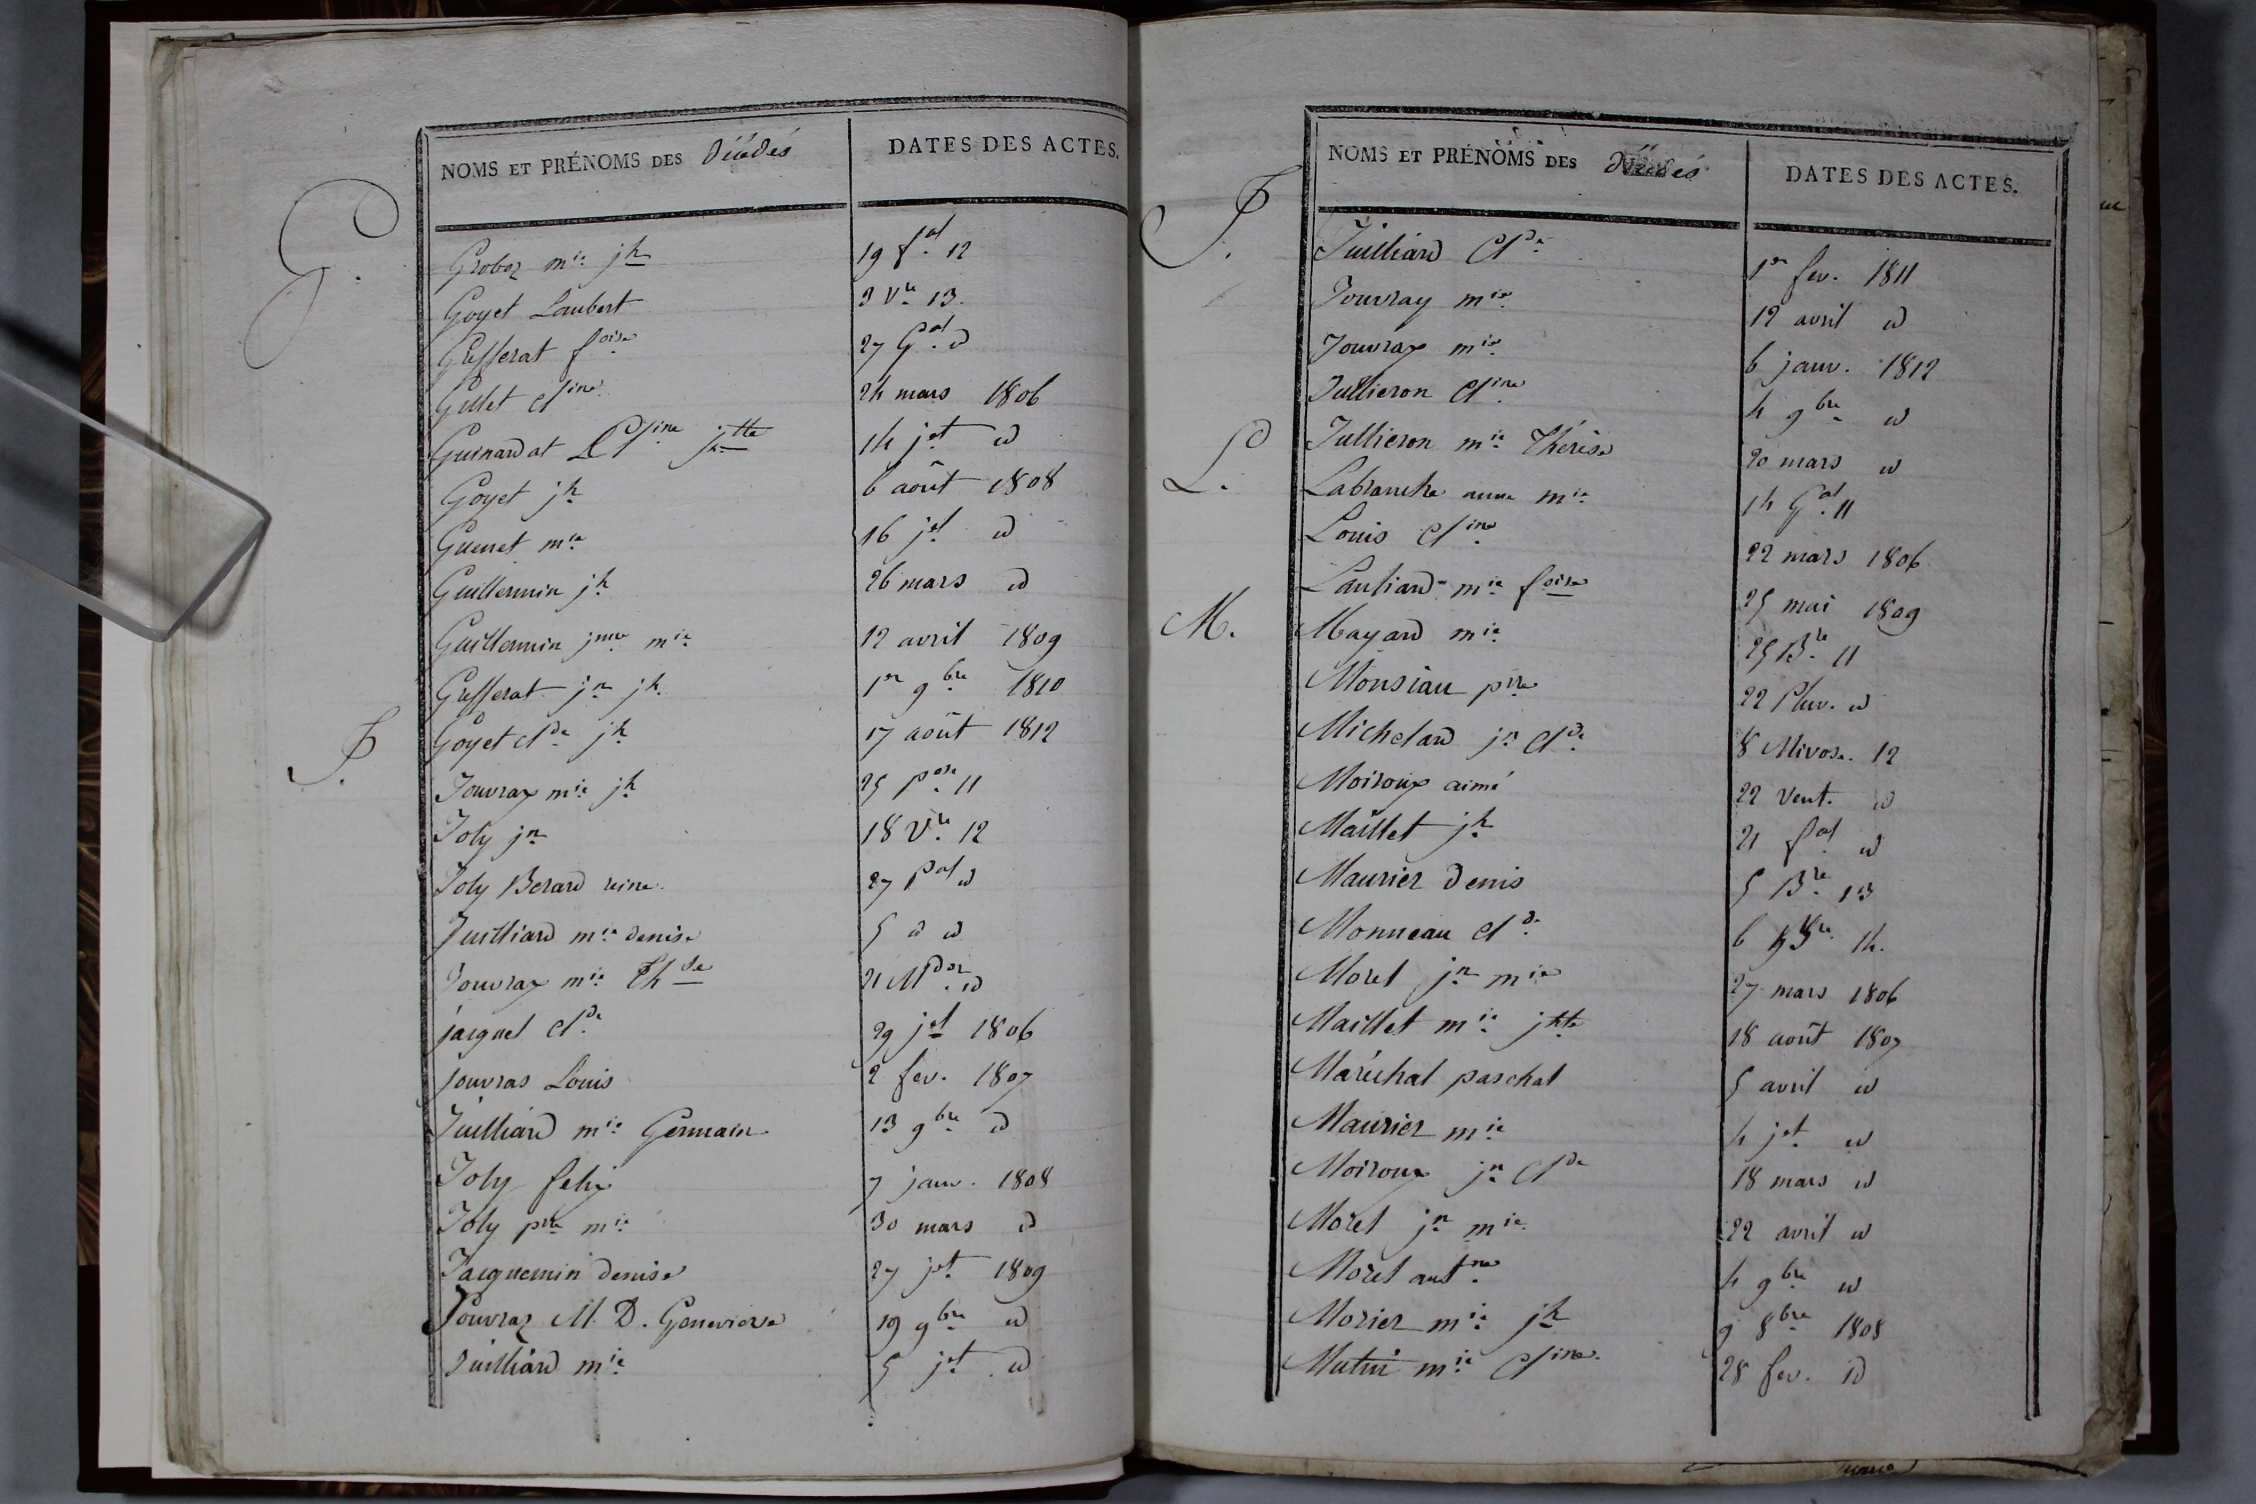 NOMS ET PRÉNOMS DES Décédés DATES DES ACTES.
G. Groboz mie jh 19 fal 12
Goyet Laubert 3 Vre 13.
Grefferat foise 27 Gal d
Gillet Cline 24 mars 1806
Guinardat Cline jtte 14 jet d
Goyet jh 6 août 1808
Guerret mie 16 jet d
Guillermin jh 26 mars d
Guillermin jne mie 12 avril 1809
Grefferat jn jh 1er 9bre 1810
Goyet Clde jh 17 août 1812
J. Jouvray mie jh 25 11
Joly jn 18 Vre 12
Joly Berard reine 27 Pal d
Juilliard mie denise 5 d d
Jouvray mie 21 Mdor d
jacquet Clde 29 jet 1806
jouvras Louis 2 fev. 1807
Juilliard mie Germain 13 9bre d
Joly felix 7 janv. 1808
Joly prre mie 30 mars d
Jacquemin denise 27 jet 1809
Jouvraz M. D. Genevieve 19 9bre d
Juilliard mie 5 jet d
NOMS ET PRÉNOMS DES Décédés DATES DES ACTES.
J. Juilliard Clde 1er fev. 1811
Jouvray mie 12 avril d
Jouvray mie 6 janv. 1812
Jullieron Cline 4 9bre d
Jullieron mie Thérèse 20 mars d
L. Labranche anne mie 14 Gal 11
Louis Cline 22 mars 1806
mie foise 25 mai 1809
M. Mayard mie 25 Bre 11
Monsiau prre 22 Pluv. d
Michelard jn Clde 8 Nivose. 12
Moiroux aimé 22 Vent. d
Maillet jh 21 fal d
Maurier Denis 5 Bre 13
Monneau Clde 6 14.
Morel jn mie 27 mars 1806
Maillet mie jtte 18 août 1807
Maréchal paschal 5 avril d
Maurier mie 4 jet d
Moiroux jn Clde 18 mars d
Morel jn mie 22 avril d
Morel antne 4 9bre d
Morier mie jh 9 8bre 1808
Mutin mie Cline 28 fev. d